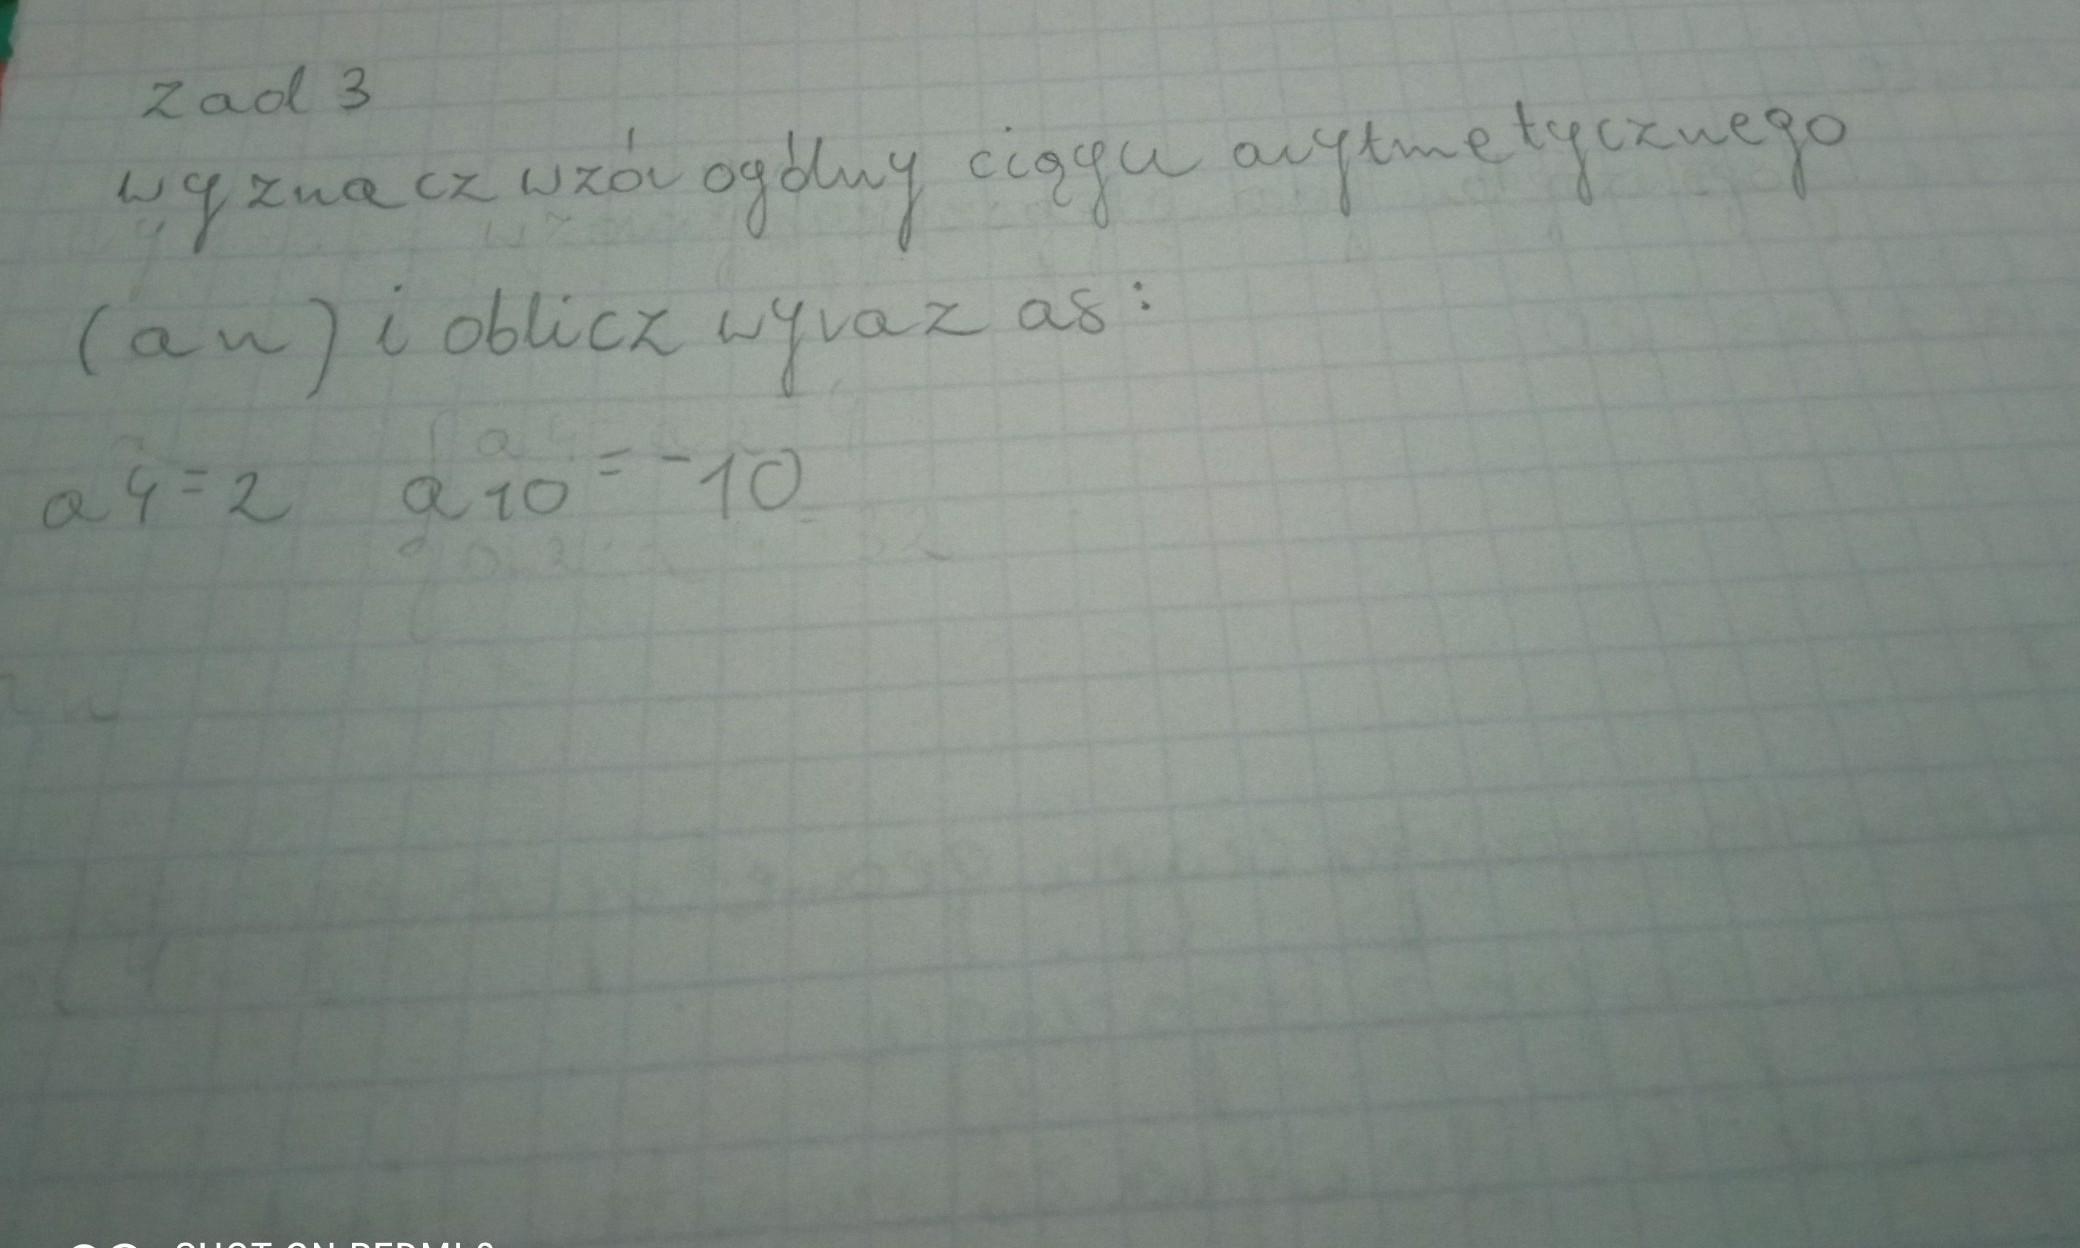 zad 3
wyznacz wzór ogólny ciągu arytmetycznego
(an) i oblicz wyraz a8:
a4=2 a10=-10
SHOT ON REDMI 9